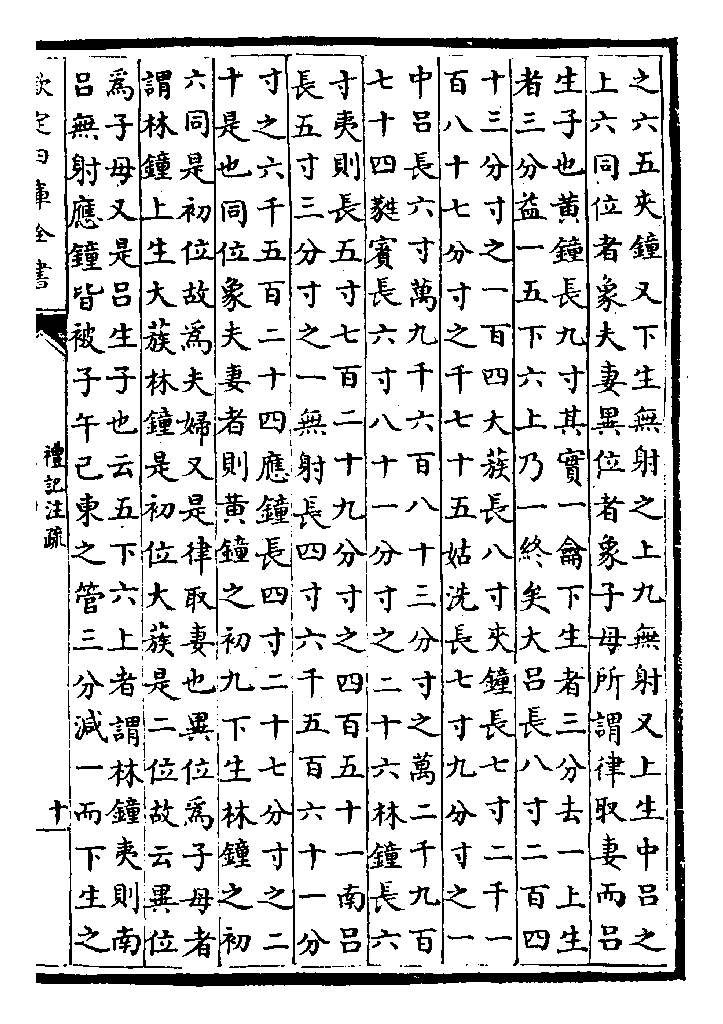 之六五夾鐘又下生無射之上九無射又上生中呂之
上六同位者象夫妻異位者象子母所謂律取妻而呂
生子也黃鐘長九寸其實一龠下生者三分去一上生
者三分益一五下六上乃一終矣大呂長八寸二百四
十三分寸之一百四大蔟長八寸夾鐘長七寸二千一
百八十七分寸之千七十五姑洗長七寸九分寸之一
中呂長六寸萬九千六百八十三分寸之萬二千九百
七十四蕤賓長六寸八十一分寸之二十六林鐘長六
寸夷則長五寸七百二十九分寸之四百五十一南呂
長五寸三分寸之一無射長四寸六千五百六十一分
寸之六千五百二十四應鐘長四寸二十七分寸之二
十是也同位象夫妻者則黃鐘之初九下生林鐘之初
六同是初位故爲夫婦又是律取妻也異位爲子母者
謂林鐘上生大蔟林鐘是初位大蔟是二位故云異位
爲子母又是呂生子也云五下六上者謂林鐘夷則南
呂無射應鐘皆被子午已東之管三分減一而下生之
欽定四庫全書
禮記注疏
十